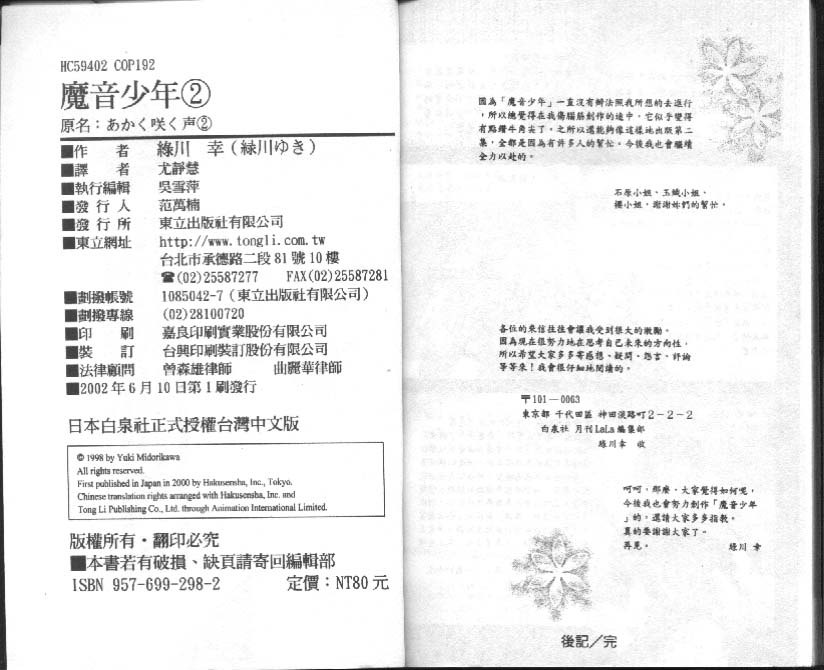 HC59402 COP192
魔音少年②
原名：あかく咲く声②
■作　　者　綠川　幸（緑川ゆき）
■譯　　者　尤靜慧
■執行編輯　吳雪萍
■發 行 人　范萬楠
■發 行 所　東立出版社有限公司
■東立網址　http://www.tongli.com.tw
台北市承德路二段81號10樓
☎(02)25587277　FAX(02)25587281
■劃撥帳號　1085042-7（東立出版社有限公司）
■劃撥專線　(02)28100720
■印　　刷　嘉良印刷實業股份有限公司
■裝　　訂　台興印刷裝訂股份有限公司
■法律顧問　曾森雄律師　曲麗華律師
■2002年6月10日第1刷發行
日本白泉社正式授權台灣中文版
© 1998 by Yuki Midorikawa
All rights reserved.
First published in Japan in 2000 by Hakusensha, Inc., Tokyo.
Chinese translation rights arranged with Hakusensha, Inc. and
Tong Li Publishing Co., Ltd. through Animation International Limited.
版權所有・翻印必究
■本書若有破損、缺頁請寄回編輯部
ISBN 957-699-298-2　定價：NT80元
因為「魔音少年」一直沒有辦法照我所想的去進行
，所以總覺得在我傷腦筋創作的途中，它似乎變得
有點鑽牛角尖了。之所以還能夠像這樣地出版第二
集，全都是因為有許多人的幫忙。今後我也會繼續
全力以赴的。
石原小姐、玉織小姐、
櫻小姐，謝謝妳們的幫忙。
各位的來信往往會讓我受到很大的激勵。
因為現在很努力地在思考自己未來的方向性，
所以希望大家多多寄感想、疑問、怨言、評論
等等來！我會很仔細地閱讀的。
〒101－0063
東京都 千代田區 神田淡路町2－2－2
白泉社 月刊LaLa編集部
綠川幸 收
呵呵，那麼，大家覺得如何呢，
今後我也會努力創作「魔音少年
」的，還請大家多多指教。
真的要謝謝大家了。
再見。　綠川 幸
後記／完